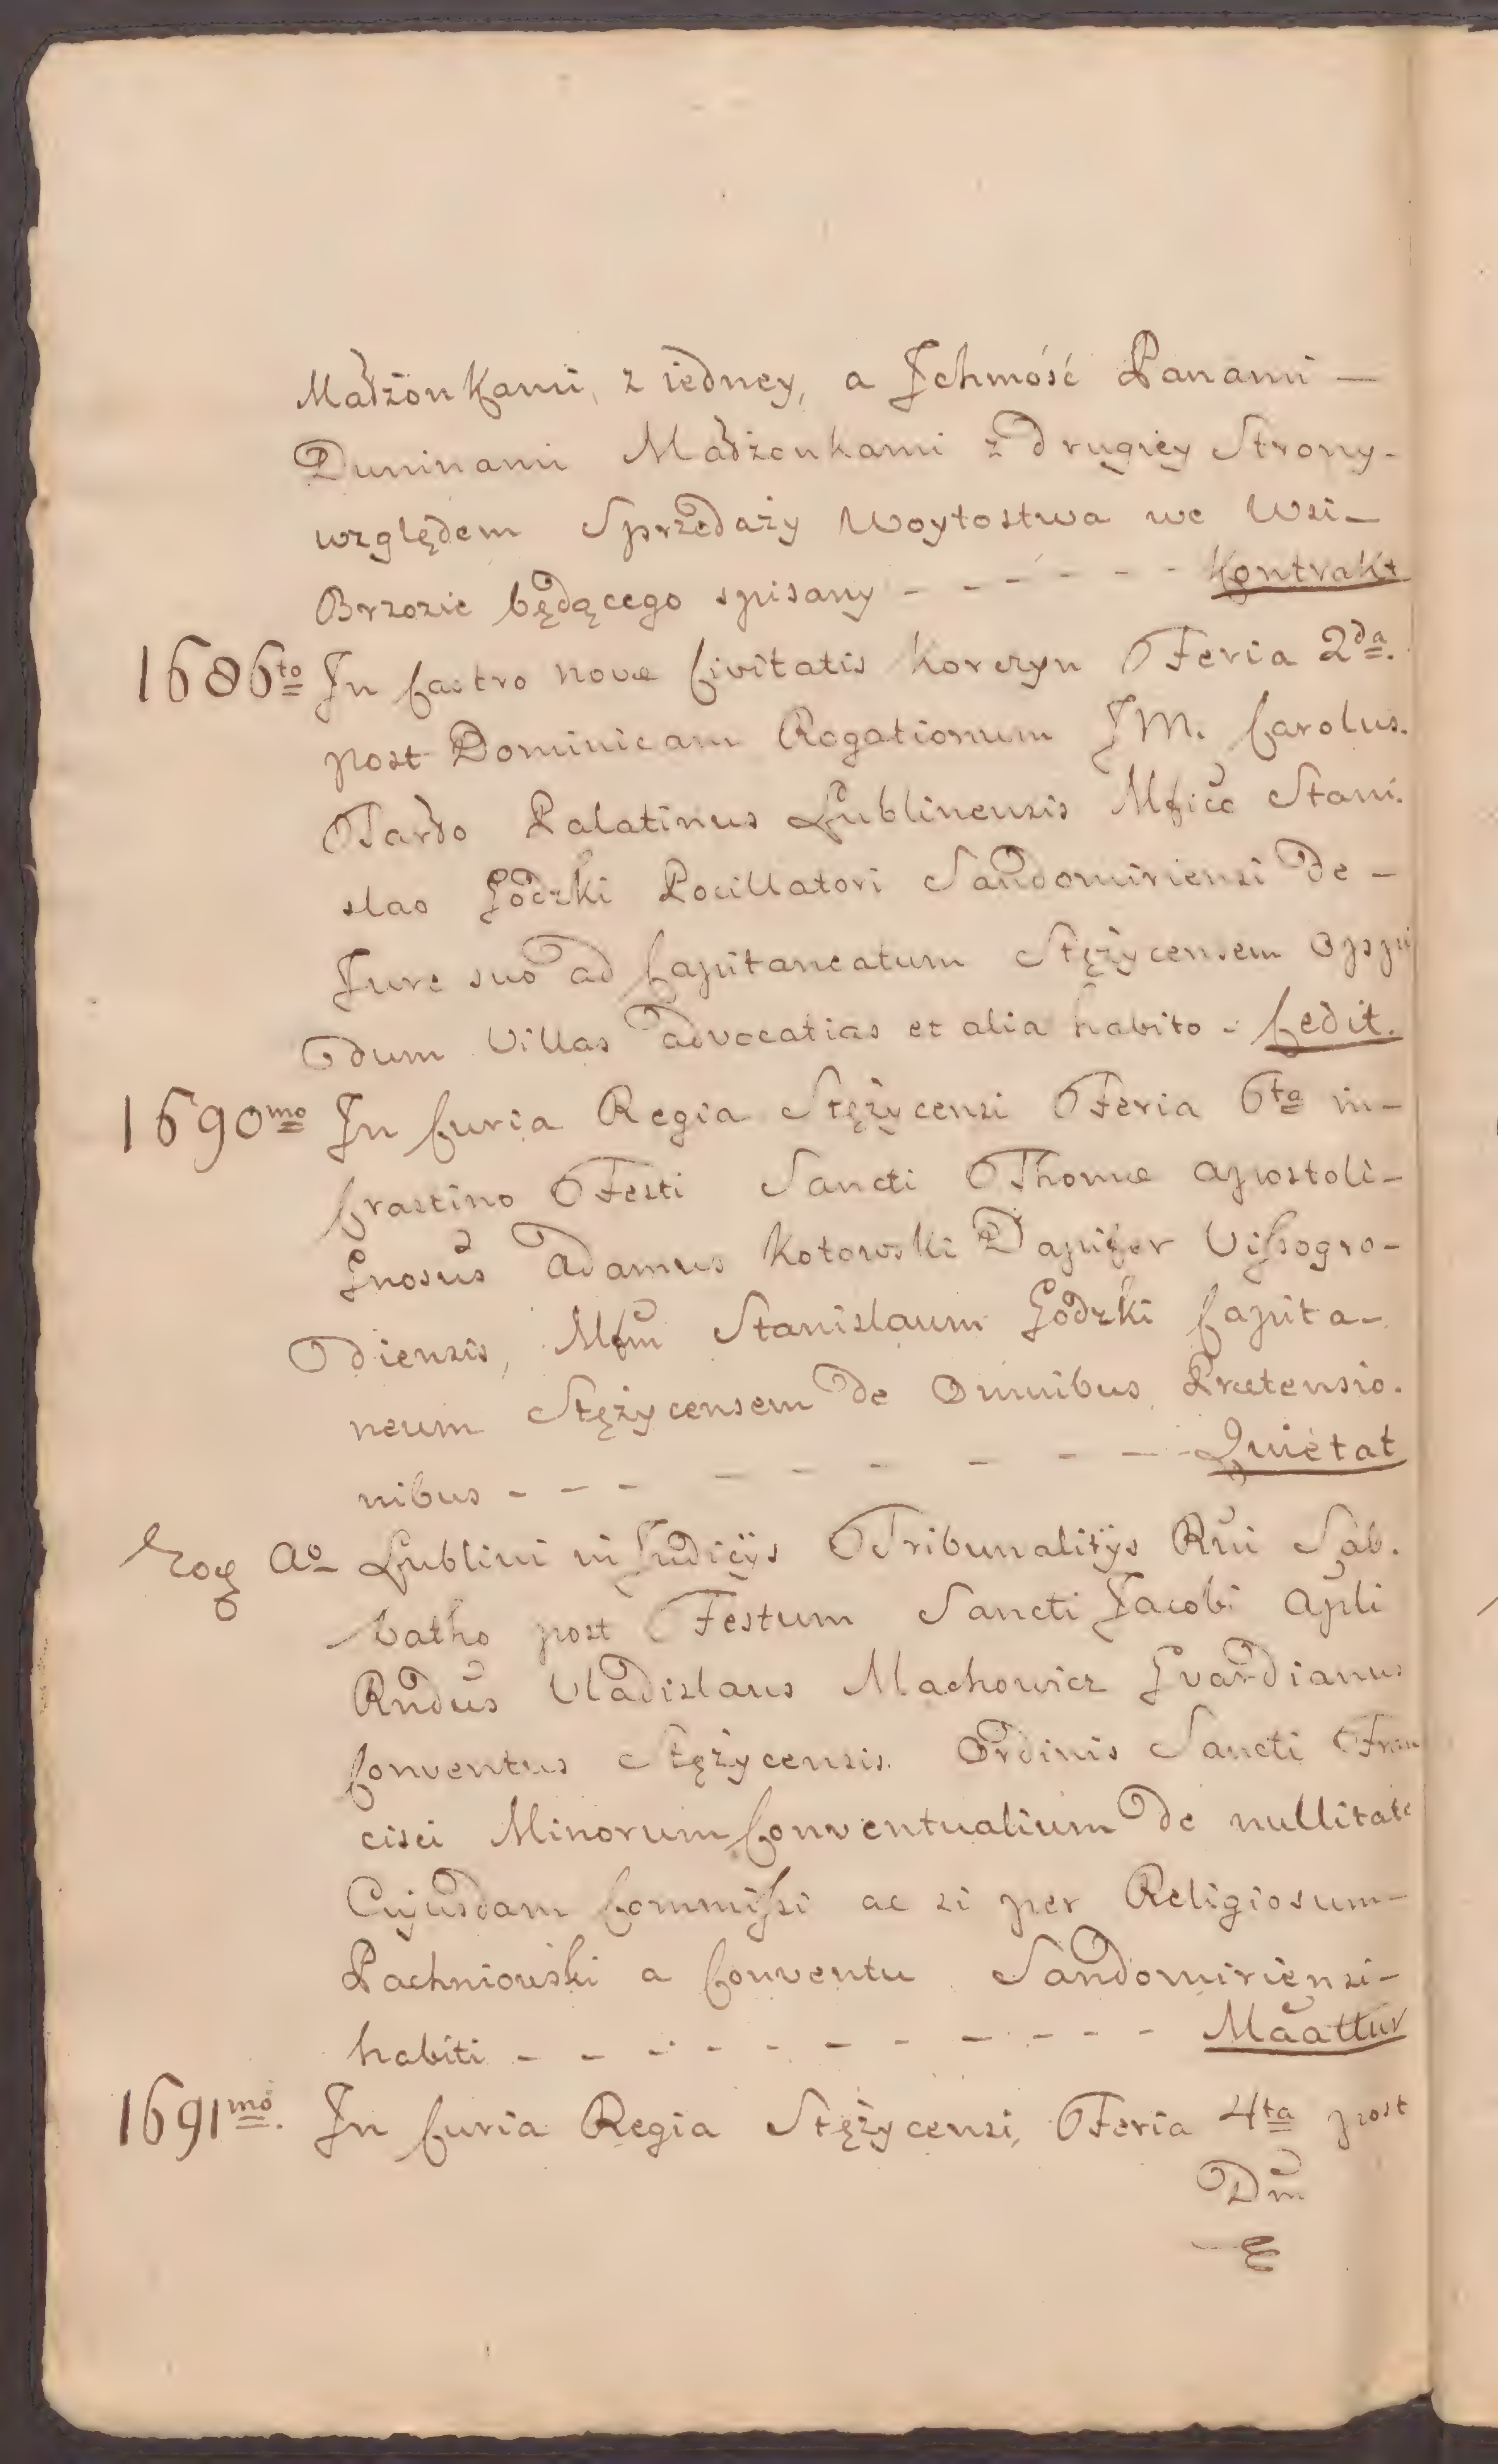 Małżonkami, z iedney, a Jchmość Panami —
Duninami Małżonkami z drugiey Strony -
względem Sprzedaży Woytostwa we Wsi -
Brzozie będącego spisany - - - - - - Kontrakt
1686to In Castro novæ Civitatis Korczyn Feria 2da.
post Dominicam Rogationum JM. Carolus.
Tarło Palatinus Lublinensis Mfico Stani.
slao Godzki Pocillatori Sandomiriensi de -
Jure suo ad Capitaneatum Stężycensem Oppi
dum Villas advocatias et alia habito - Cedit.
1690mo In Curia Regia Stężycensi Feria 6ta in -
Crastino Festi Sancti Thomæ Apostoli -
Gnosus Adamus Kotowski Dapifer Vissogro -
diensis, Mfum Stanislaum Godzki Capita -
neum Stężycensem de Omnibus Prætensio.
nibus - - - - - - - - - Quietat
Eoq Ao Lublini in Judicÿs Tribunalitÿs Rni Sab.
batho post Festum Sancti Jacobi Apli
Rndus Vladislaus Machowicz Gvardianus
Conventus Stężycensis. Ordinis Sancti Fran
cisci Minorum Conventualium de nullitate
Cujusdam Commissi ac si per Religiosum -
Pachniowski a Conventu Sandomiriensi -
habiti - - - - - - - - - - Maattur
1691mo. In Curia Regia Stężycensi, Feria 4ta post
Dm